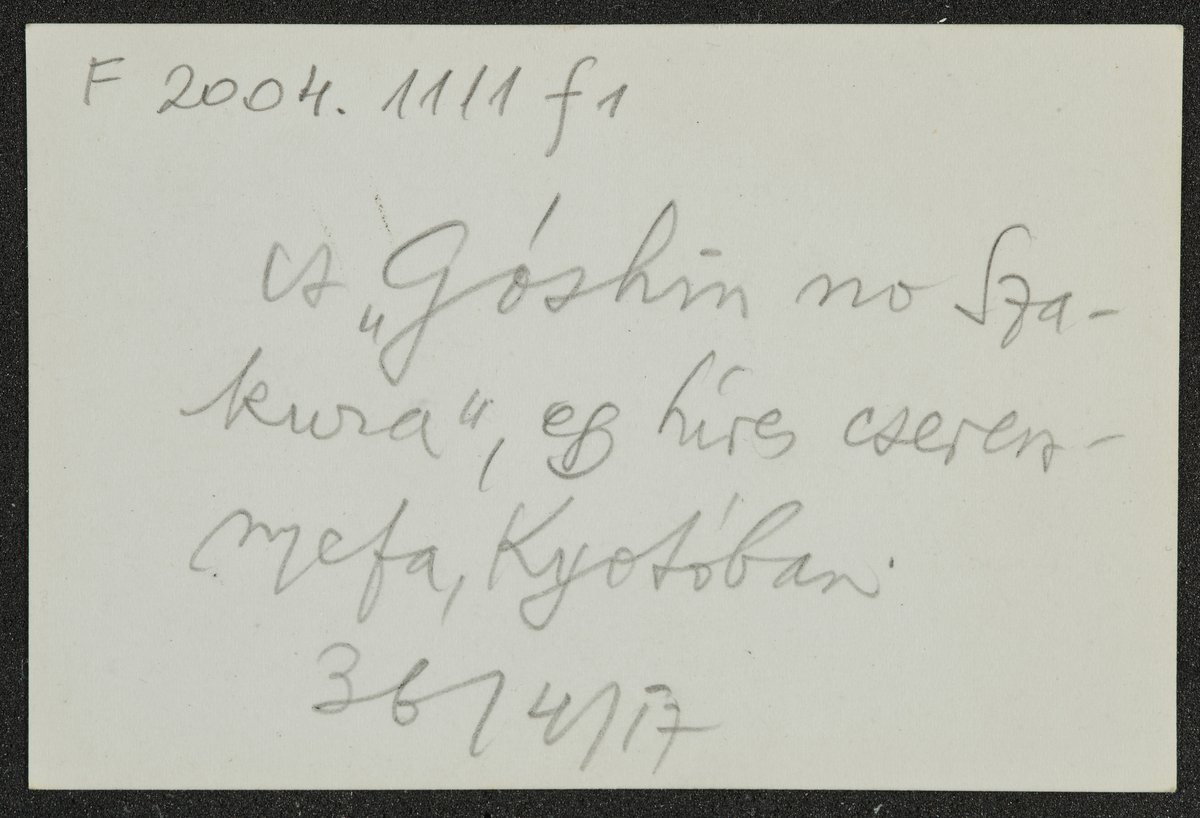 F 2004. 11/1 f1
"Góshin no Sza-
kura", egy híres cseresz-
nyefa, Kyotóban.
36/4/17